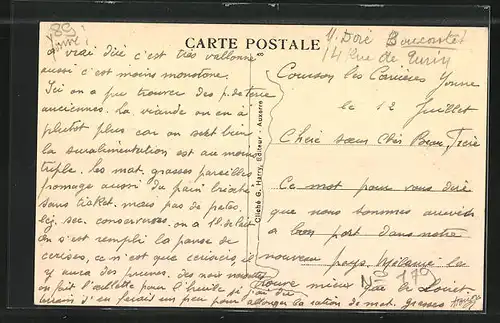 89
Yonne
CARTE POSTALE
V. Doré Boucontet
14 Rue de Turin
Courson les Carrières Yonne
le 12 Juillet
Chère sœur Cher Beau, Frère
Ce mot pour vous dire
que nous sommes arrivés
a bon port dans notre
nouveau pays. Mélanie la
trouve mieux que le Loiret
N° 179
a vrai dire c'est très vallonné
aussi c'est moins monotone.
Ici on a pu trouver des p. de terre
anciennes. la viande on en a
plutot plus car on sert bien
la suralimentation est au moins
triple. les mat. grasses pareilles
fromage aussi du pain brioché
sans ticket. mais pas de pates.
leg. sec. conserverse. on a 1l de lait
on s'est rempli la panse de
cerises, ce n'est que cerisiers, il
y aura des prunes. des noix
on fait l'œillette pour l'huile si j'ai du
terrain j'en ferait un peu pour allonger la ration de mat. grasses
Cliché G. Harry, Editeur - Auxerre